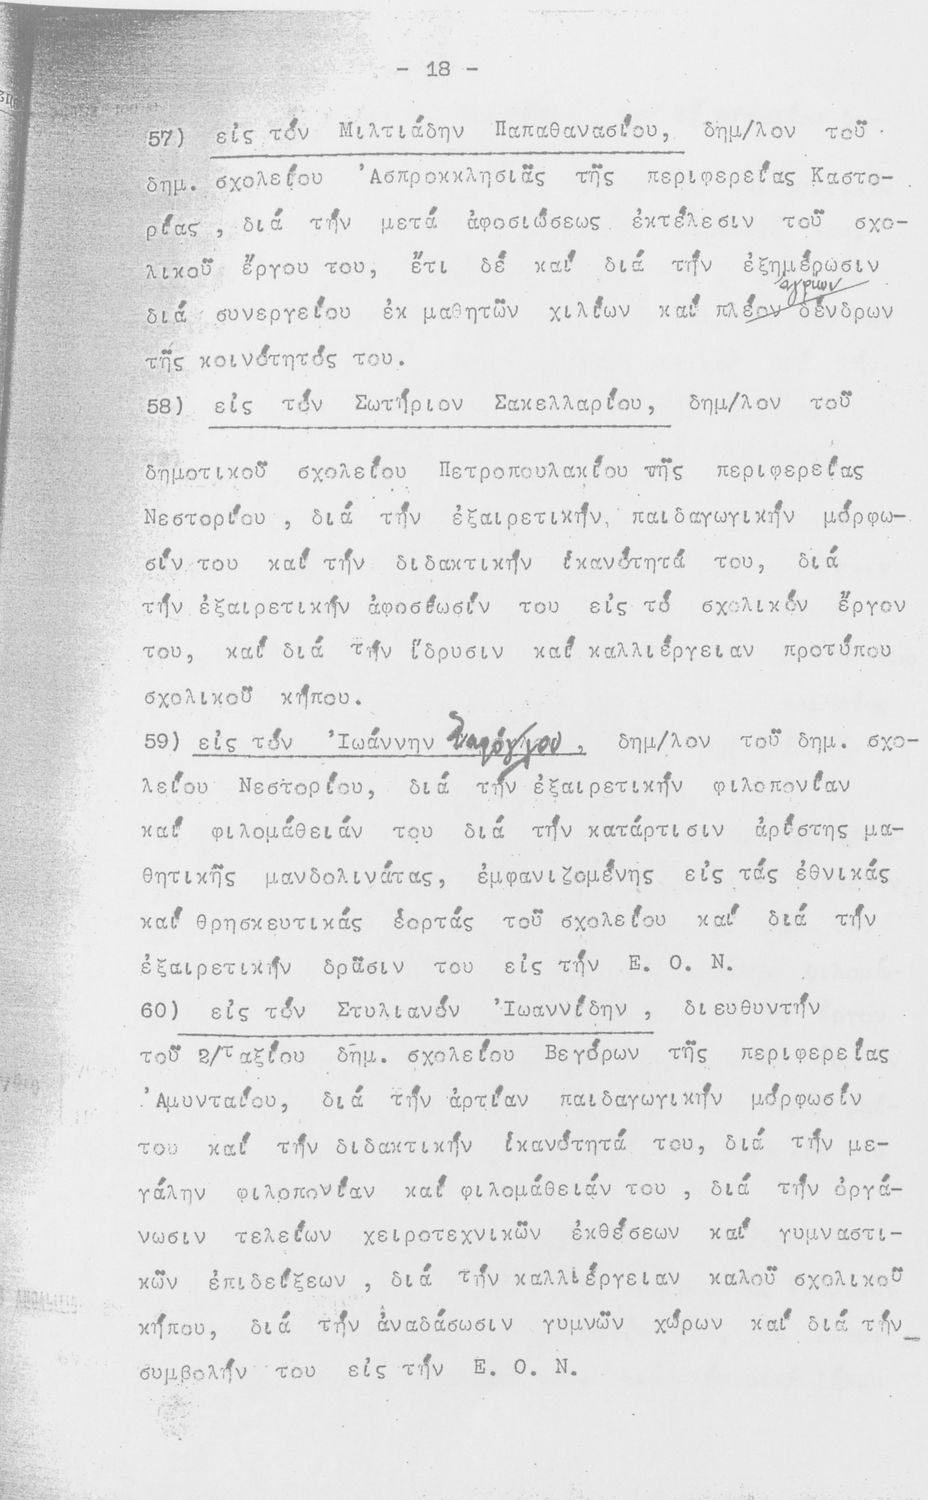 - 18 -
57) εἰς τόν Μιλτιάδην Παπαθανασίου, δημ/λον τοῦ
δημ. σχολείου Ἀσπροκκλησιᾶς τῆς περιφερείας Καστο-
ρίας, διά τήν μετά ἀφοσιώσεως ἐκτέλεσιν τοῦ σχο-
λικοῦ ἔργου του, ἔτι δέ καί διά τήν ἐξημέρωσιν
ἀγρίων
διά συνεργείου ἐκ μαθητῶν χιλίων καί πλέον δένδρων
τῆς κοινότητός του.
58) εἰς τόν Σωτήριον Σακελλαρίου, δημ/λον τοῦ
δημοτικοῦ σχολείου Πετροπουλακίου τῆς περιφερείας
Νεστορίου, διά τήν ἐξαιρετικήν, παιδαγωγικήν μόρφω-
σίν του καί τήν διδακτικήν ἱκανότητά του, διά
τήν ἐξαιρετικήν ἀφοσίωσίν του εἰς τό σχολικόν ἔργον
του, καί διά τήν ἵδρυσιν καί καλλιέργειαν προτύπου
σχολικοῦ κήπου.
59) εἰς τόν Ἰωάννην , δημ/λον τοῦ δημ. σχο-
λείου Νεστορίου, διά τήν ἐξαιρετικήν φιλοπονίαν
καί φιλομάθειάν του διά τήν κατάρτισιν ἀρίστης μα-
θητικῆς μανδολινάτας, ἐμφανιζομένης εἰς τάς ἐθνικάς
καί θρησκευτικάς ἑορτάς τοῦ σχολείου καί διά τήν
ἐξαιρετικήν δρᾶσιν του εἰς τήν Ε. Ο. Ν.
60) εἰς τόν Στυλιανόν Ἰωαννίδην, διευθυντήν
τοῦ 2/ταξίου δημ. σχολείου Βεγόρων τῆς περιφερείας
Ἀμυνταίου, διά τήν ἀρτίαν παιδαγωγικήν μόρφωσίν
του καί τήν διδακτικήν ἱκανότητά του, διά τήν με-
γάλην φιλοπονίαν καί φιλομάθειάν του, διά τήν ὀργά-
νωσιν τελείων χειροτεχνικῶν ἐκθέσεων καί γυμναστι-
κῶν ἐπιδείξεων, διά τήν καλλιέργειαν καλοῦ σχολικοῦ
κήπου, διά τήν ἀναδάσωσιν γυμνῶν χώρων καί διά τήν
συμβολήν του εἰς τήν Ε. Ο. Ν.